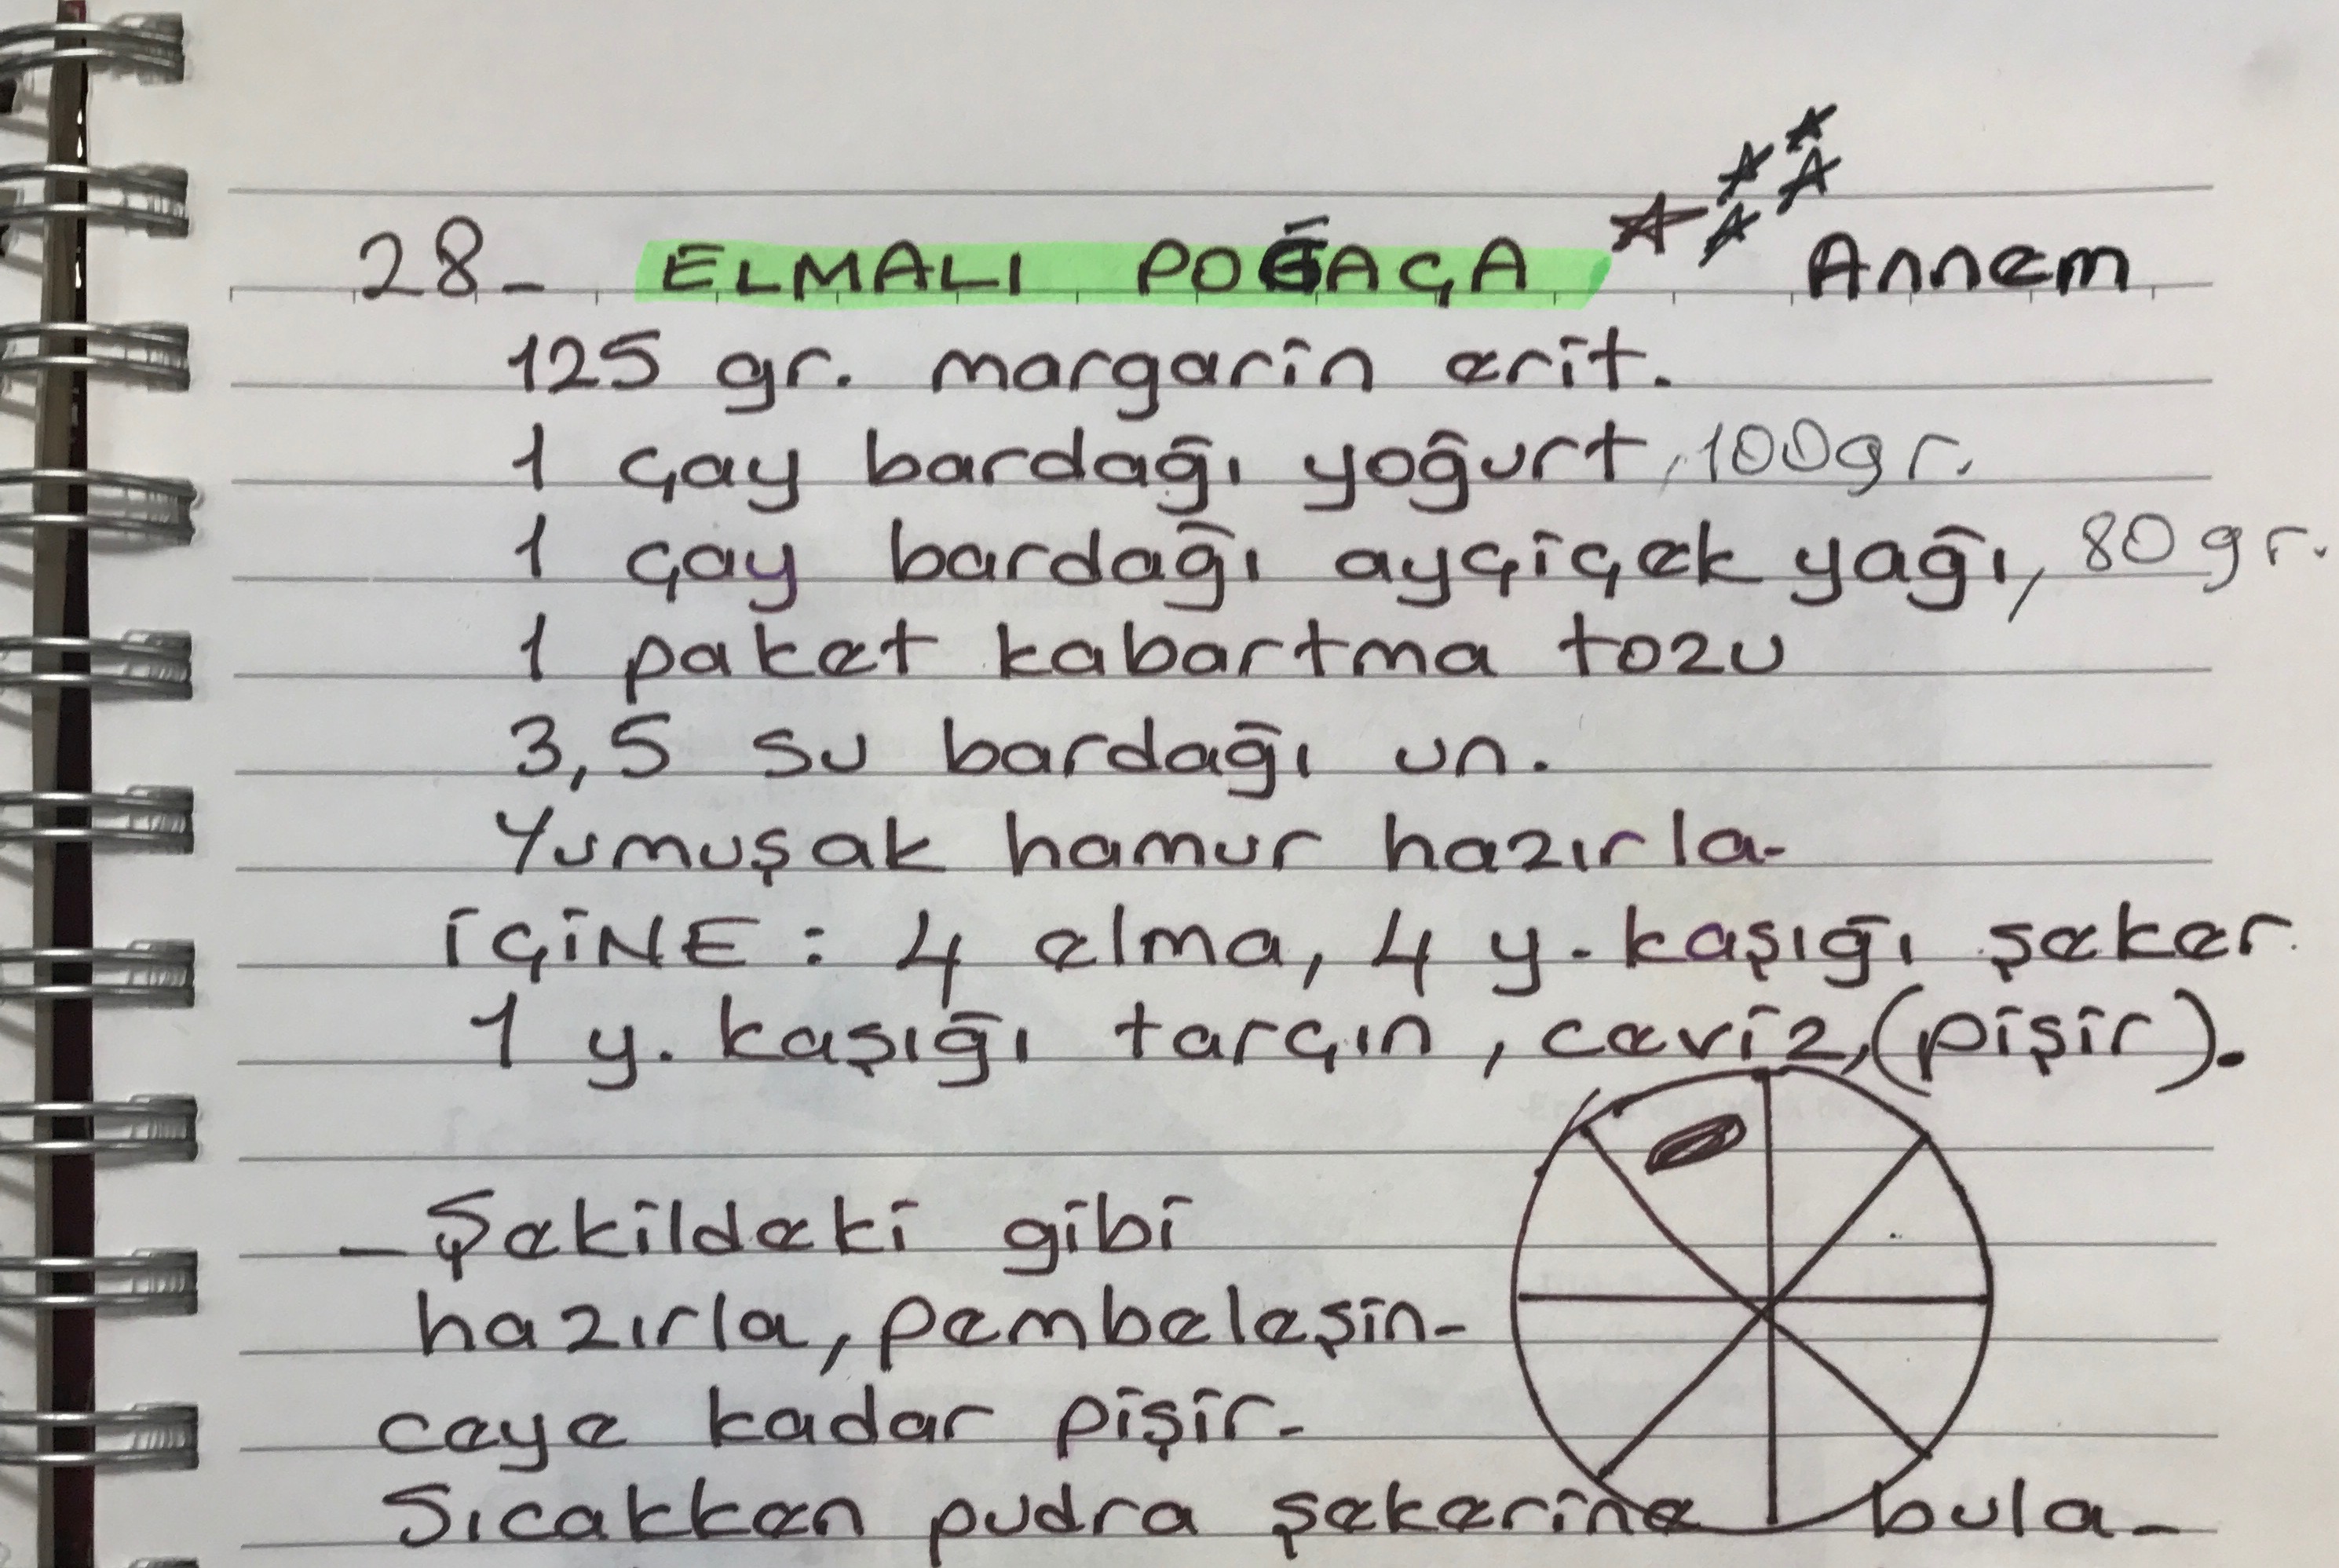 28- ELMALI POĞAÇA Annem
125 gr. margarin erit.
1 çay bardağı yoğurt, 100gr.
1 çay bardağı ayçiçek yağı, 80gr.
1 paket kabartma tozu
3,5 su bardağı un.
Yumuşak hamur hazırla-
İÇİNE : 4 elma, 4 y. kaşığı şeker
1 y. kaşığı tarçın, ceviz, (pişir).
- Şekildeki gibi
hazırla, pembeleşin-
ceye kadar pişir-
Sıcakken pudra şekerine bula-